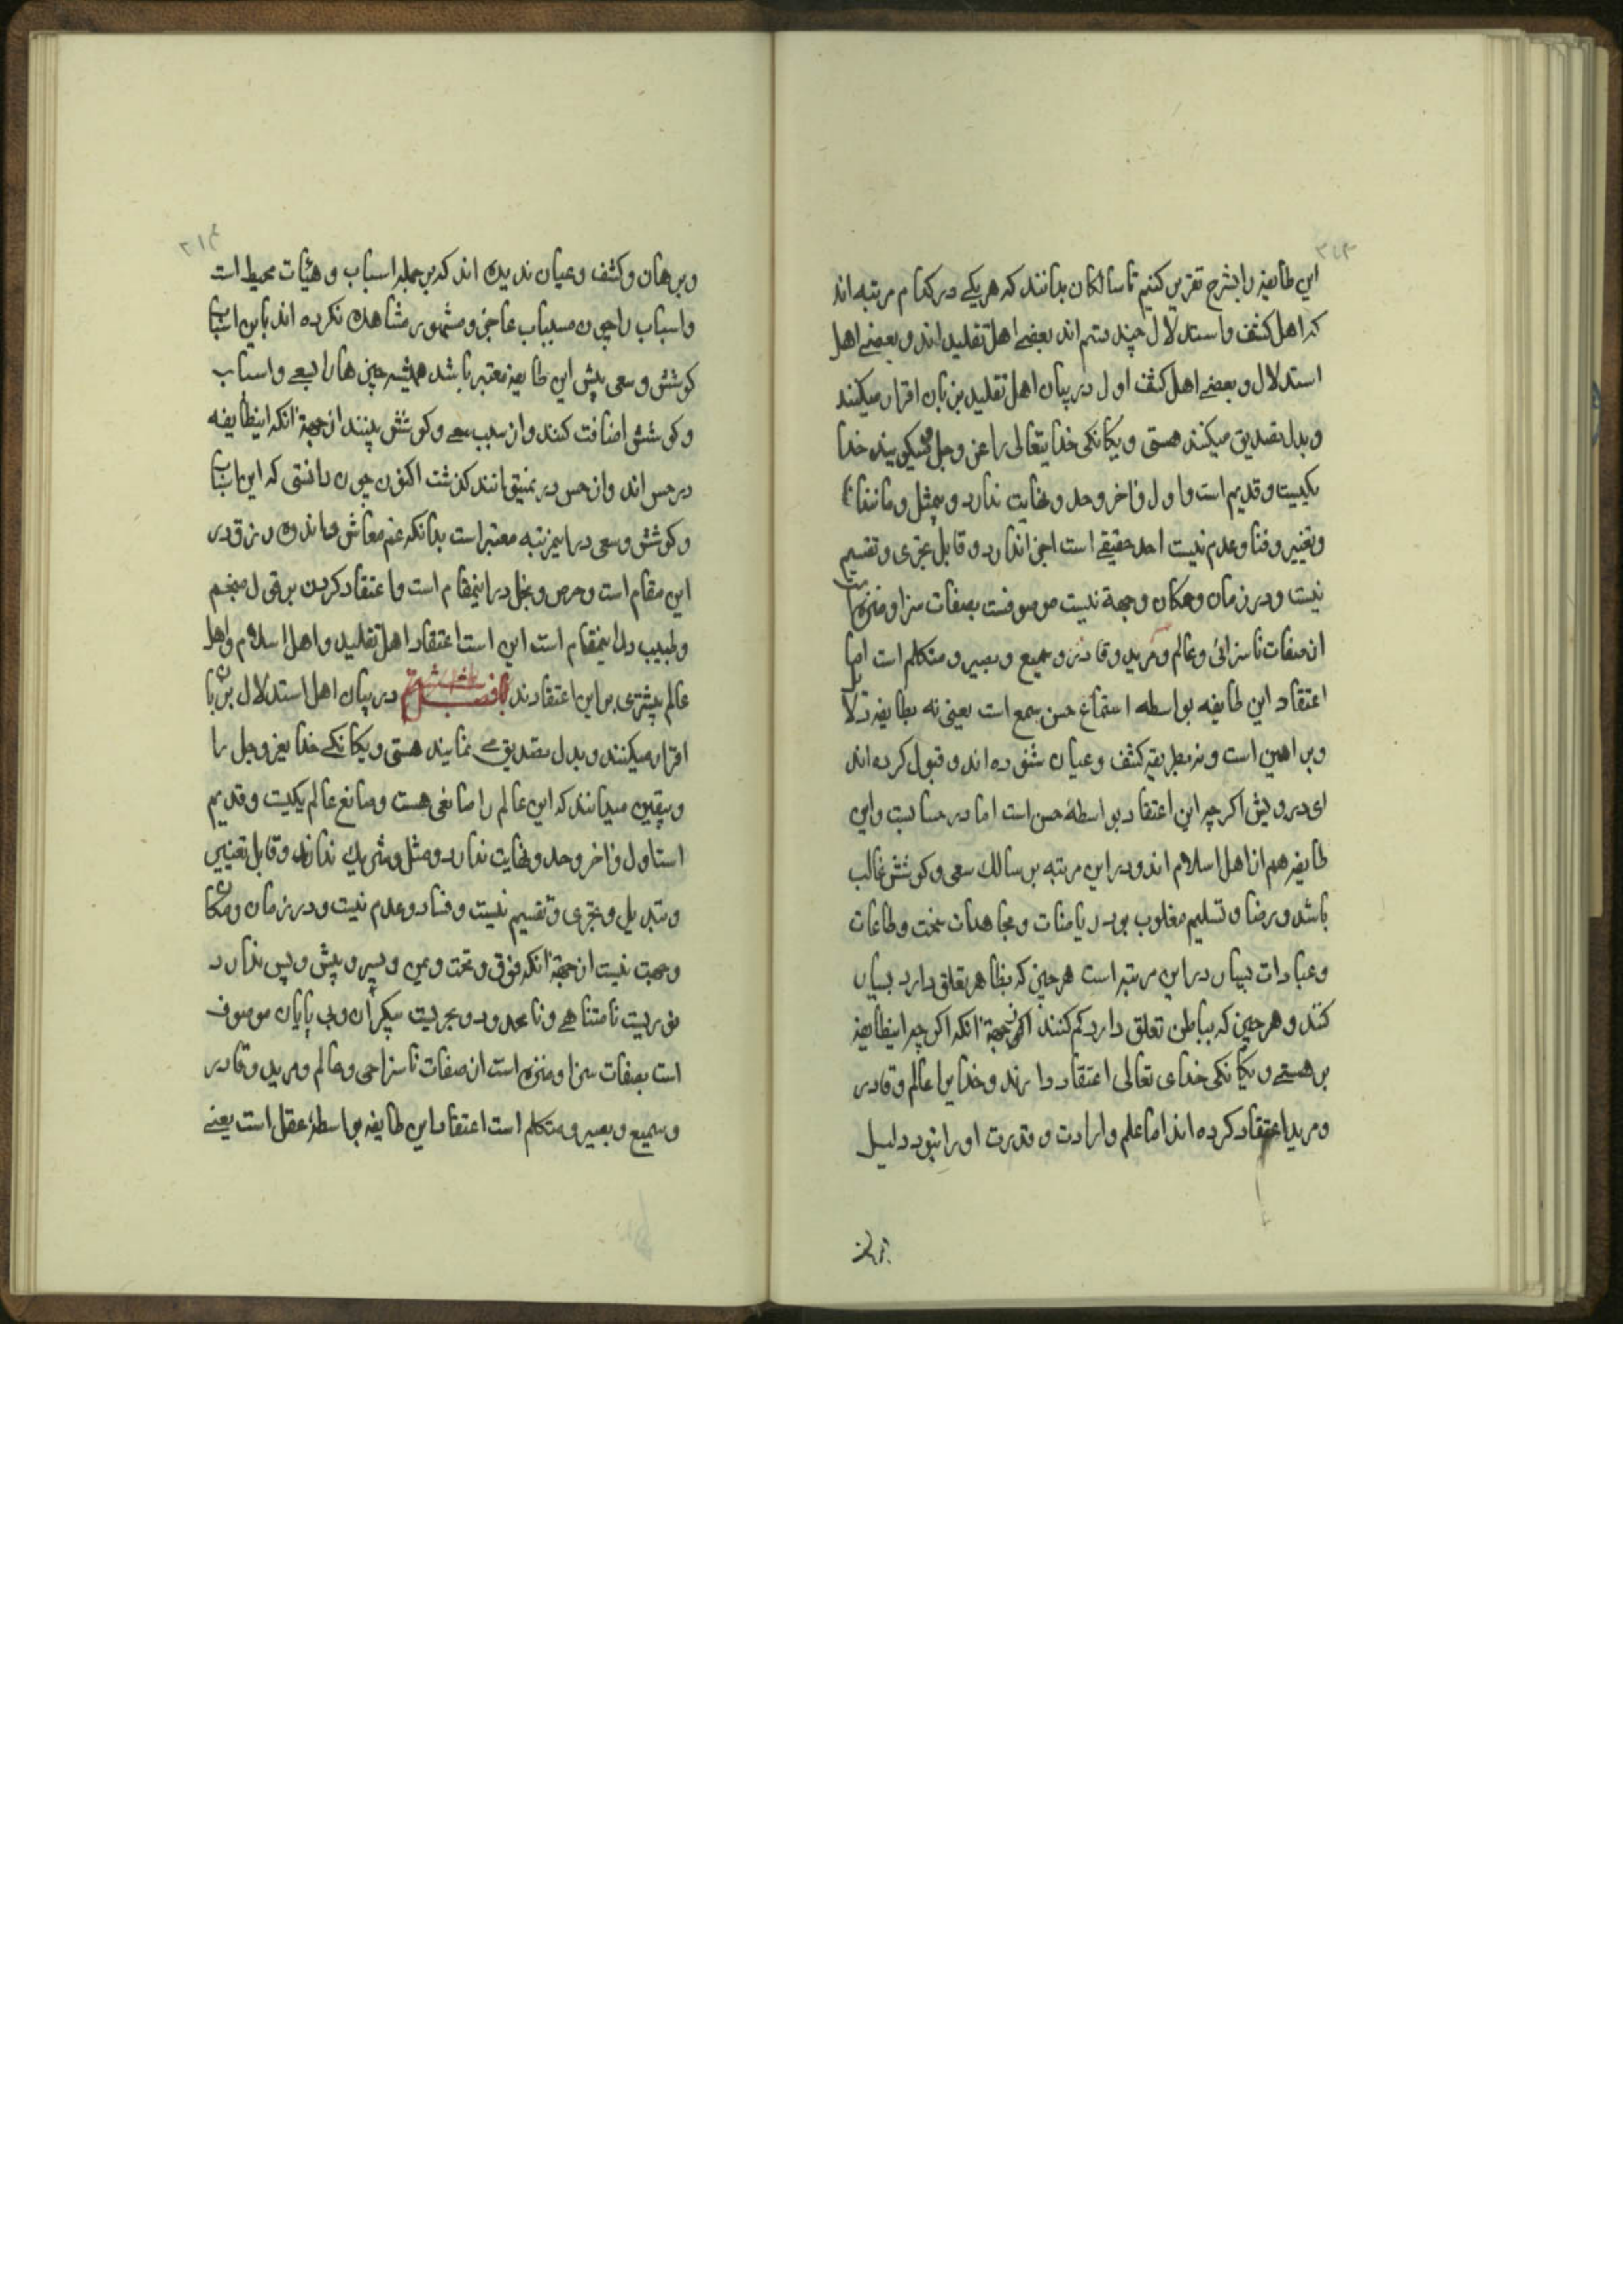 ۳۱۳
این طایفه را بشرح تقریر کنیم تا سالکان بدانند که هریکی در کدام مرتبه اند
که اهل کشف و استدلال چند قسم اند بعضی اهل تقلید اند و بعضی اهل
استدلال و بعضی اهل کشف اول در بیان اهل تقلید بزبان اقرار میکنند
و بدل تصدیق میکنند هستی و یکانکی خدایتعالی را عز و جل خدا
یکیست و قدیم است و اول و اخر و حد و نهایت ندارد و بیمثل و مانند
و تغییر و فنا و عدم نیست احد حقیقی است اجزا ندارد و قابل تجزی و تقسیم
نیست و در زمان و مکان و جهة نیست موصوفست بصفات سزا و منزه
از صفات ناسزائی و عالم و مرید و قادر و سمیع و بصیر و متکلم است اما
اعتقاد این طایفه بواسطه استماع حس سمع است یعنی نه بطایفه دلا
و براهین است و نه بطریقه کشف و عیان شنوده اند و قبول کرده اند
ای درویش اکرچه این اعتقاد بواسطهٔ حس است اما در حسابست و این
طایفه هم از اهل اسلام اند و در این مرتبه بر سالک سعی و کوشش غالب
باشد و رضا و تسلیم مغلوب بود ریاضات و مجاهدات سخت و طاعات
و عبادات بسیار در این مرتبه است هرچیز که بظاهر تعلق دارد بسیار
کنند و هرچیز که بباطن تعلق دارد کم کنند از جهة انکه اکر چه اینطایفه
بر هستی و یکانکی خدای تعالی اعتقاد دارند و خدا را عالم و قادر
و مرید اعتقاد کرده اند اما علم و ارادت و قدرت او را بنور دلیل
و برهان
۳۱۴
و برهان و کشف و عیان ندیده اند که بر جمله اسباب و هیئات محیط است
و اسباب را چون مسببات عاجز و مقهور مشاهده نکرده اند باین اسباب
کوشش و سعی پیش این طایفه معتبر باشد همیشه چیزها را بسعی و اسباب
و کوشش اضافت کنند و از سبب سعی و کوشش بینند از جهة انکه اینطایفه
در حس اند و از حس در نمیتوانند کذشت اکنون چون دانستی که این اسباب
و کوشش و سعی در اینمرتبه معتبر است بدانکه غم معاش و اندوه رزق در
این مقام است و حرص و بخل در اینمقام است و اعتقاد کردن بر قول منجم
و طبیب در اینمقام است این است اعتقاد اهل تقلید و اهل اسلام و اهل
عالم بیشتری بر این اعتقادند در بیان اهل استدلال بزبان
اقرار میکنند و بدل تصدیق می نمایند هستی و یکانکی خدا یعز و جل را
و بیقین میدانند که این عالم را صانعی هست و صانع عالم یکیست و قدیم
است اول و اخر و حد و نهایت ندارد و مثل و شریک ندارد و قابل تغییر
و تبدیل و تجزی و تقسیم نیست و فساد و عدم نیست و در زمان و مکان
و جهت نیست از جهة انکه فوق و تحت و یمین و یسار و پیش و پس ندارد
نوریست نامتناهی و نامحدود و بحریست بیکران و بی پایان موصوف
است بصفات سزا و منزه است از صفات ناسزا حی و عالم و مرید و قادر
و سمیع و بصیر و متکلم است اعتقاد این طایفه بواسطهٔ عقل است یعنی